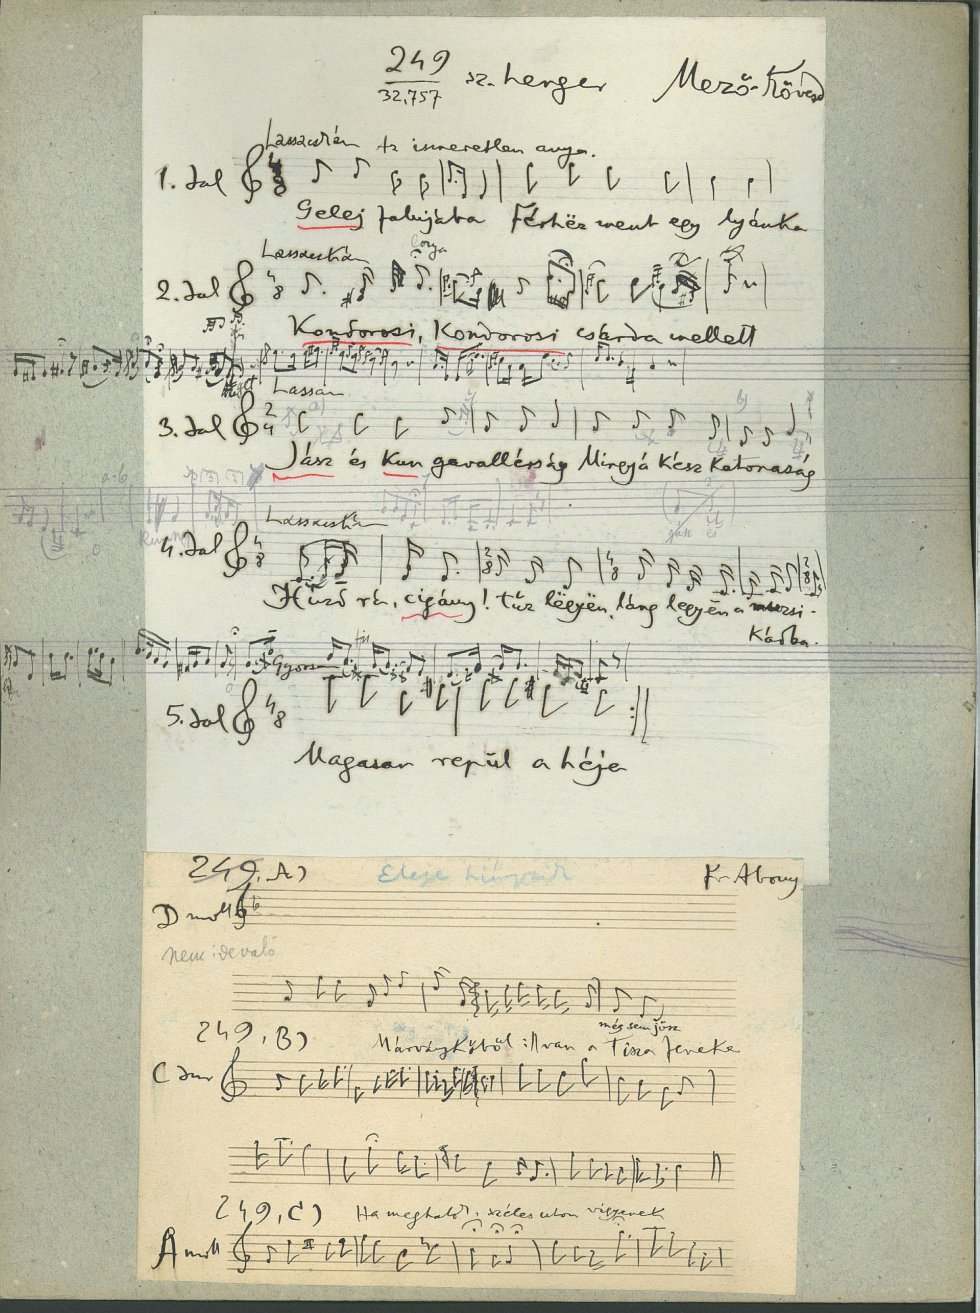 249 sz. henger Mező-Kövesd
32,757
Lassacskán Az ismeretlen anya.
1. dal
Gelej falujába Férhëz ment egy lyánka
Lassacskán
2. dal
Kondorosi, Kondorosi csárda mellett
Lassan
3. dal
Jász és Kun gavallérság Mingyá kész katonaság
a-b
Lassacskán
4. dal
Húzd rá, cigány! tűz lëgyën, láng legyën a muzsi-
kádba.
Gyorsan
5. dal
Magasan repül a héja
249, A) Eleje hiányzik Abony
D moll
nem ide való
még sem jösz
249, B) Márványkőből van a Tisza feneke
C dur
249, C) Ha meghalok, széles uton vigyenek
A moll